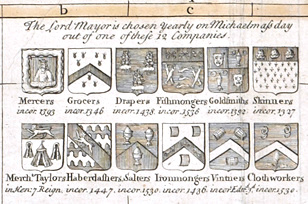 b c
The Lord Mayor is chosen yearly on Michaelmass day
out of one of these 12 Companies.
Mercers Grocers Drapers Fishmongers Goldsmiths Skinners
incor. 1393 incor. 1346 incor. 1438 incor. 1536 incor. 1392 incor. 1327
Merch. Taylors Haberdashers Salters Ironmongers Vintners Clothworkers
in Hen: 7 Reign. incor. 1447. incor. 1530. incor. 1436. incor incor. 1530.